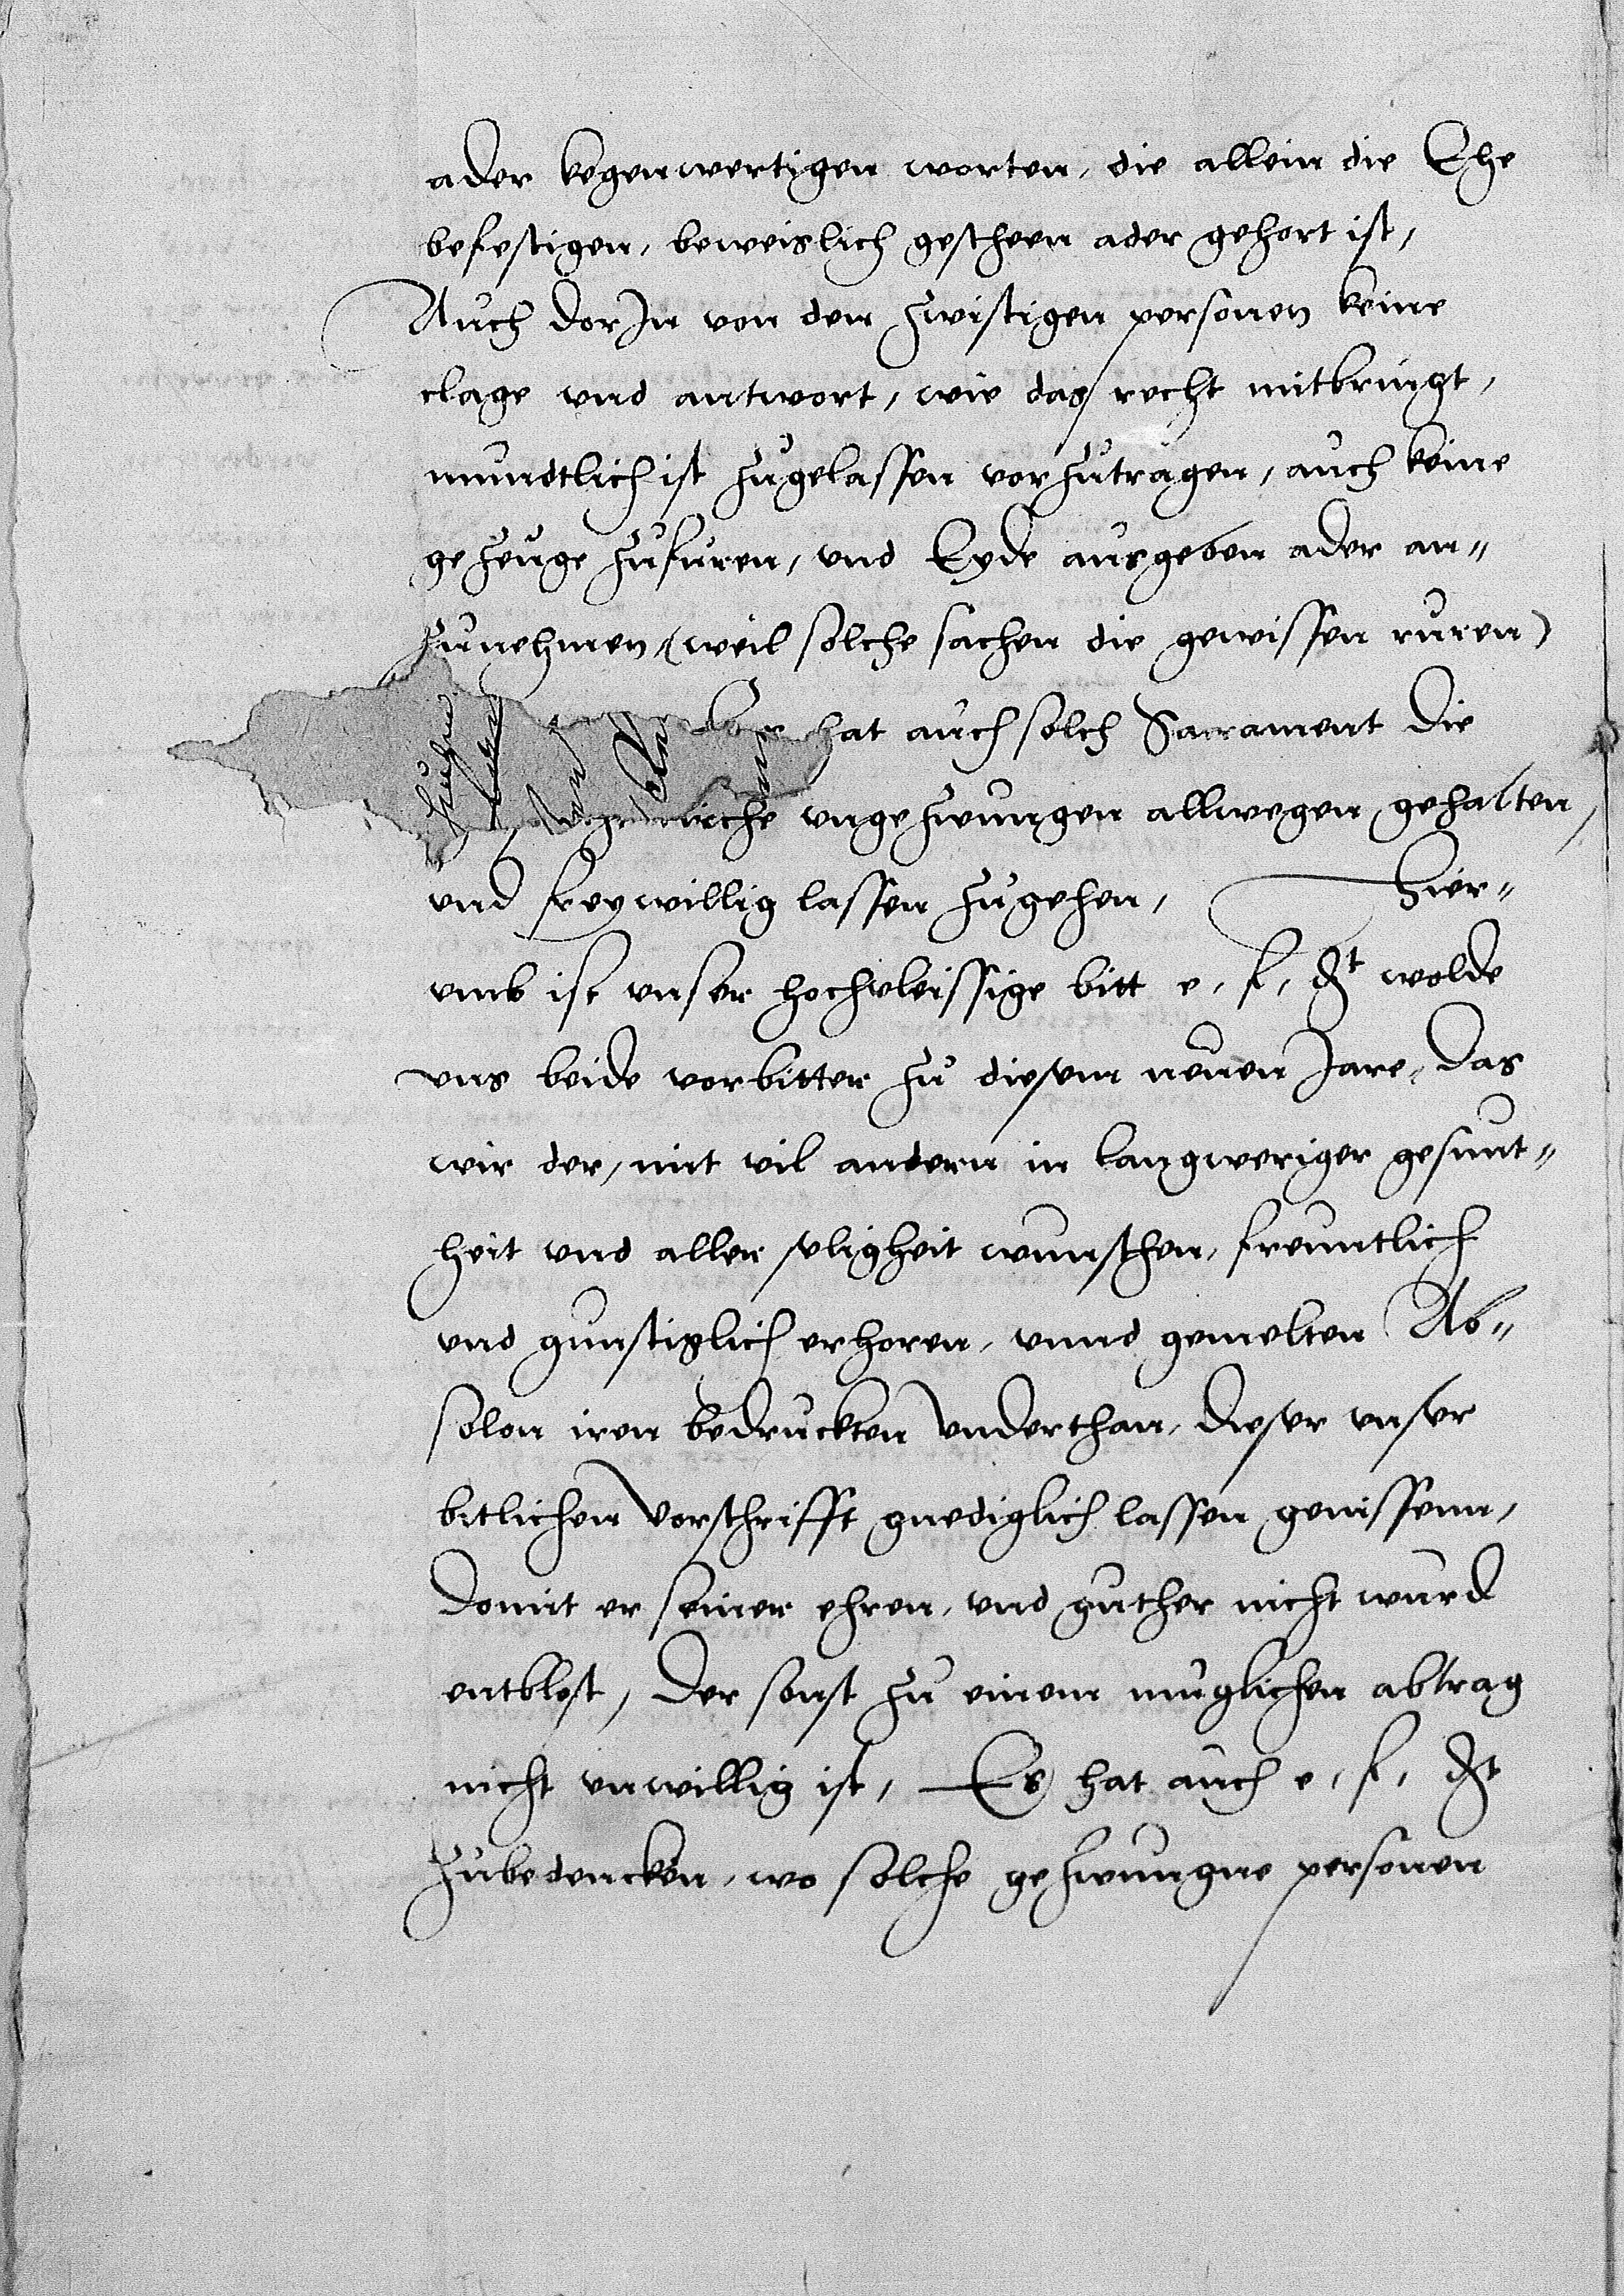 ader kegenwertigen worten, die allein die Ehe
befestigen, beweislich gescheen ader gehort ist,
Auch dorIn von den zwistigen personen keine
clage vnd antwort, wie das recht mitbringt,
mundtlich ist zugelassen vorzutragen, auch keine
gezeuge zufuren, vnd Eyde ausgeben ader an„
zunehmen, (weil solche sachen die gewissen ruren)
hat auch solch Sacrament die
kirche vngezwungen allwegen gehalten,
vnd freywillig lassen zugehen, Hier„
vmb ist vnser hochvleissige bitt e, f, gt wolde
vns beide vorbitter zu diesem neuen Jare, das
wir der, mit vil andern in langweriger gesunt„
heit vnd aller seligheit wunschen, freuntlich
vnd gunstiglich erhoren, vnnd gemelten Ab„
solon iren bedruckten vnderthan, dieser vnser
bitlichen vorschrifft gnediglich lassen genissenn,
Domit er seiner ehren, vnd guther nicht wurd
entblost, Der sonst zu einem muglichen abtrag
nicht vnwillig ist, Es hat auch e, f, gt
zubedencken, wo solche gezwungne personen